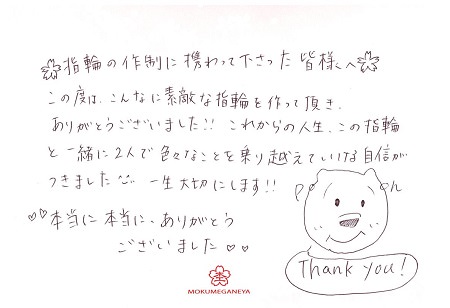 指輪の作制に携わって下さった皆様へ
この度は、こんなに素敵な指輪を作って頂き、
ありがとうございました!! これからの人生、この指輪
と一緒に2人で色々なことを乗り越えていけな自信が
つきました 一生大切にします!!
本当に本当に、ありがとう
ございました
Thank you!
MOKUMEGANEYA